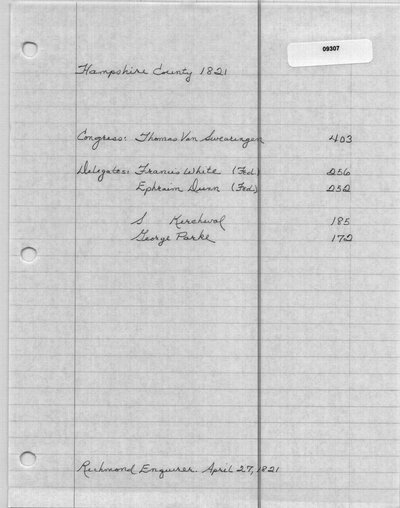 09307
Hampshire County 1821
Congress: Thomas Van Swearingen 403
Delegates: Francis White (Fed) 256
Ephraim Dunn (Fed) 252
S Kerchval 185
George Parke 172
Richmond Enquirer. April 27, 1821